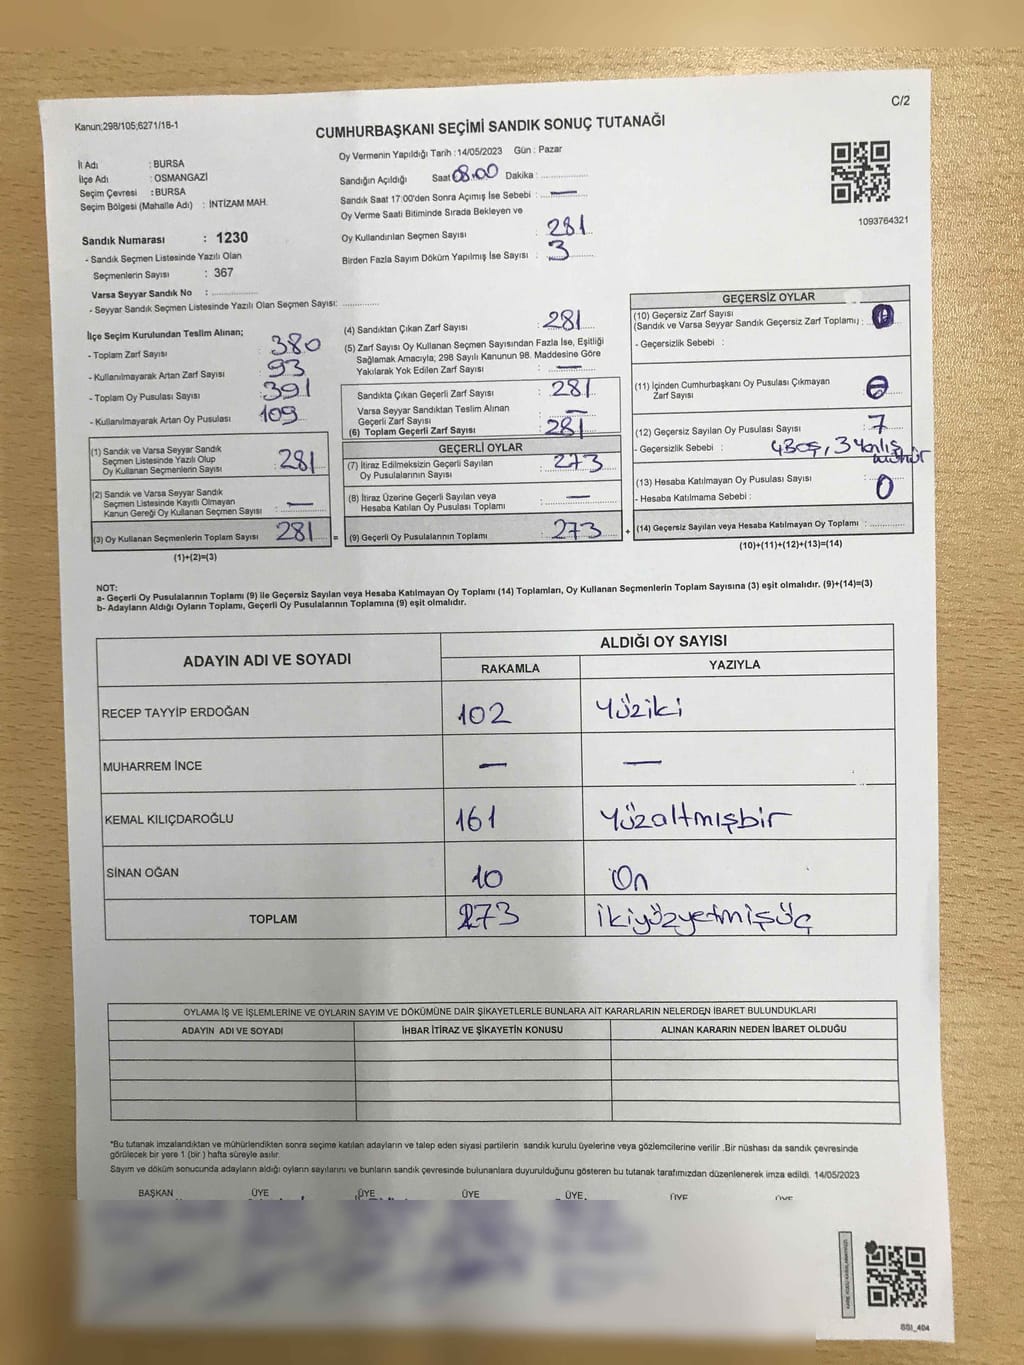 C/2
Kanun;298/105;6271/18-1
CUMHURBAŞKANI SEÇİMİ SANDIK SONUÇ TUTANAĞI
İl Adı : BURSA
İlçe Adı : OSMANGAZİ
Seçim Çevresi : BURSA
Seçim Bölgesi (Mahalle Adı) : İNTİZAM MAH.
Sandık Numarası : 1230
- Sandık Seçmen Listesinde Yazılı Olan
Seçmenlerin Sayısı : 367
Varsa Seyyar Sandık No : ..............
- Seyyar Sandık Seçmen Listesinde Yazılı Olan Seçmen Sayısı: ..............
Oy Vermenin Yapıldığı Tarih : 14/05/2023 Gün : Pazar
Sandığın Açıldığı Saat 08.00 Dakika : ..............
Sandık Saat 17:00'den Sonra Açımış İse Sebebi : —
Oy Verme Saati Bitiminde Sırada Bekleyen ve
Oy Kullandırılan Seçmen Sayısı : 281
Birden Fazla Sayım Döküm Yapılmış İse Sayısı : 3
1093764321
İlçe Seçim Kurulundan Teslim Alınan;
- Toplam Zarf Sayısı : 380
- Kullanılmayarak Artan Zarf Sayısı : 93
- Toplam Oy Pusulası Sayısı : 391
- Kullanılmayarak Artan Oy Pusulası : 109
(1) Sandık ve Varsa Seyyar Sandık
Seçmen Listesinde Yazılı Olup
Oy Kullanan Seçmenlerin Sayısı : 281
(2) Sandık ve Varsa Seyyar Sandık
Seçmen Listesinde Kayıtlı Olmayan
Kanun Gereği Oy Kullanan Seçmen Sayısı : —
(3) Oy Kullanan Seçmenlerin Toplam Sayısı 281 =
(1)+(2)=(3)
(4) Sandıktan Çıkan Zarf Sayısı : 281
(5) Zarf Sayısı Oy Kullanan Seçmen Sayısından Fazla İse, Eşitliği
Sağlamak Amacıyla; 298 Sayılı Kanunun 98. Maddesine Göre
Yakılarak Yok Edilen Zarf Sayısı : —
Sandıkta Çıkan Geçerli Zarf Sayısı : 281
Varsa Seyyar Sandıktan Teslim Alınan
Geçerli Zarf Sayısı : —
(6) Toplam Geçerli Zarf Sayısı : 281
GEÇERLİ OYLAR
(7) İtiraz Edilmeksizin Geçerli Sayılan
Oy Pusulalarının Sayısı : 273
(8) İtiraz Üzerine Geçerli Sayılan veya
Hesaba Katılan Oy Pusulası Toplamı : —
(9) Geçerli Oy Pusulalarının Toplamı : 273 +
GEÇERSİZ OYLAR
(10) Geçersiz Zarf Sayısı
(Sandık ve Varsa Seyyar Sandık Geçersiz Zarf Toplamı) :
- Geçersizlik Sebebi :
(11) İçinden Cumhurbaşkanı Oy Pusulası Çıkmayan
Zarf Sayısı : 0
(12) Geçersiz Sayılan Oy Pusulası Sayısı : 7
- Geçersizlik Sebebi : 4 Boş, 3 Yanlış mühür
(13) Hesaba Katılmayan Oy Pusulası Sayısı : 0
- Hesaba Katılmama Sebebi :
(14) Geçersiz Sayılan veya Hesaba Katılmayan Oy Toplamı : ..............
(10)+(11)+(12)+(13)=(14)
NOT:
a- Geçerli Oy Pusulalarının Toplamı (9) ile Geçersiz Sayılan veya Hesaba Katılmayan Oy Toplamı (14) Toplamları, Oy Kullanan Seçmenlerin Toplam Sayısına (3) eşit olmalıdır. (9)+(14)=(3)
b- Adayların Aldığı Oyların Toplamı, Geçerli Oy Pusulalarının Toplamına (9) eşit olmalıdır.
ADAYIN ADI VE SOYADI
ALDIĞI OY SAYISI
RAKAMLA YAZIYLA
RECEP TAYYİP ERDOĞAN 102 Yüziki
MUHARREM İNCE — —
KEMAL KILIÇDAROĞLU 161 Yüzaltmışbir
SİNAN OĞAN 10 On
TOPLAM 273 İkiyüzyetmişüç
OYLAMA İŞ VE İŞLEMLERİNE VE OYLARIN SAYIM VE DÖKÜMÜNE DAİR ŞİKAYETLERLE BUNLARA AİT KARARLARIN NELERDEN İBARET BULUNDUKLARI
ADAYIN ADI VE SOYADI İHBAR İTİRAZ VE ŞİKAYETİN KONUSU ALINAN KARARIN NEDEN İBARET OLDUĞU
*Bu tutanak imzalandıktan ve mühürlendikten sonra seçime katılan adayların ve talep eden siyasi partilerin sandık kurulu üyelerine veya gözlemcilerine verilir .Bir nüshası da sandık çevresinde
görülecek bir yere 1 (bir ) hafta süreyle asılır.
Sayım ve döküm sonucunda adayların aldığı oyların sayılarını ve bunların sandık çevresinde bulunanlara duyurulduğunu gösteren bu tutanak tarafımızdan düzenlenerek imza edildi. 14/05/2023
BAŞKAN ÜYE ÜYE ÜYE ÜYE ÜYE ÜYE
SSI_404